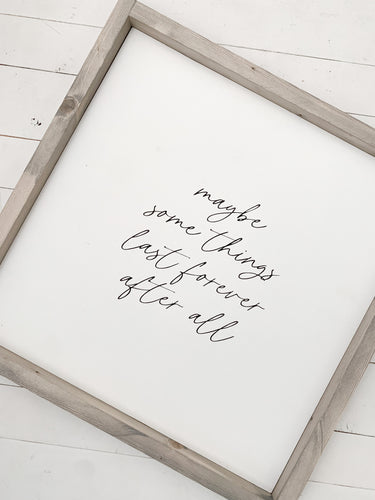 maybe
some things
last forever
after all